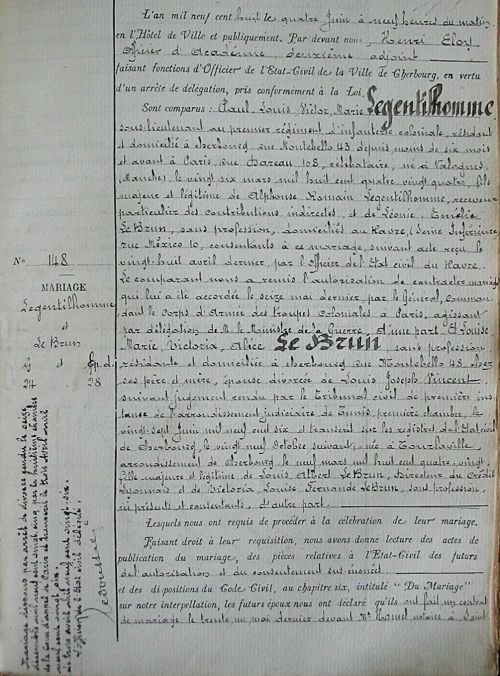 L'an mil neuf cent huit le quatre Juin à neuf heures du matin
en l'Hôtel de Ville et publiquement. Par devant nous Henri Eloy
Officier d'Académie deuxième adjoint
faisant fonctions d'Officier de l'Etat-Civil de la Ville de Cherbourg, en vertu
d'un arrêté de délégation, pris conformément à la Loi,
Sont comparus : Paul Louis Victor Marie Legentilhomme
sous-lieutenant au premier régiment d'infanterie coloniale, résidant
et domicilié à Cherbourg rue Montebello 43 depuis moins de six mois
et avant à Paris rue Dareau 108, célibataire, né à Valognes
(Manche), le vingt six mars mil huit cent quatre vingt quatre, fils
majeur et légitime de Alphonse Romain Legentilhomme, receveur
particulier des contributions indirectes et de Léonie Emélie
Le Brun, sans profession, domiciliés au Havre, (Seine Inférieure)
rue México 10, consentants à ce mariage, suivant acte reçu le
vingt-huit avril dernier, par l'Officier de l'Etat civil du Havre.
Le comparant nous a remis l'autorisation de contracter mariage
qui lui a été accordée le seize mai dernier par le Général, Comman-
dant le Corps d'Armée des troupes Coloniales à Paris, agissant
par délégation de M. le Ministre de la Guerre, d'une part. Et Louise
Marie, Victoria, Alice Le Brun sans profession
résidante et domiciliée à Cherbourg rue Montebello 43, chez
ses père et mère, épouse divorcée de Louis Joseph Vincent,
suivant jugement rendu par le Tribunal civil de première ins
tance de l'arrondissement judiciaire de Tunis, première chambre, le
vingt-sept Juin mil neuf cent six et transcrit sur les registres de l'Etat civil
de Cherbourg, le vingt neuf Octobre suivant; née à Tourlaville
arrondissement de Cherbourg, le neuf mars mil huit cent quatre vingt,
fille majeure et légitime de Louis Albert Le Brun, Directeur du Crédit
Lyonnais et de Victoria Louise Fernande Le Brun, sans profession,
ici présents et consentants, d'autre part.
Lesquels nous ont requis de procéder à la célébration de leur mariage.
Faisant droit à leur requisition, nous avons donné lecture des actes de
publication du mariage, des pièces relatives à l'Etat-Civil des futurs
de l'autorisation et du consentement sus-énoncés
et des dispositions du Code Civil, au chapitre six, intitulé "Du Mariage"
sur notre interpellation, les futurs époux nous ont déclaré qu'ils ont fait un contrat
de mariage le trente un mai dernier devant Me Hamel notaire à Saint
No 148
MARIAGE
Legentilhomme
et
Le Brun
et Ep. d.
24 28
Mariage dissous par arrêt de divorce rendu le seize